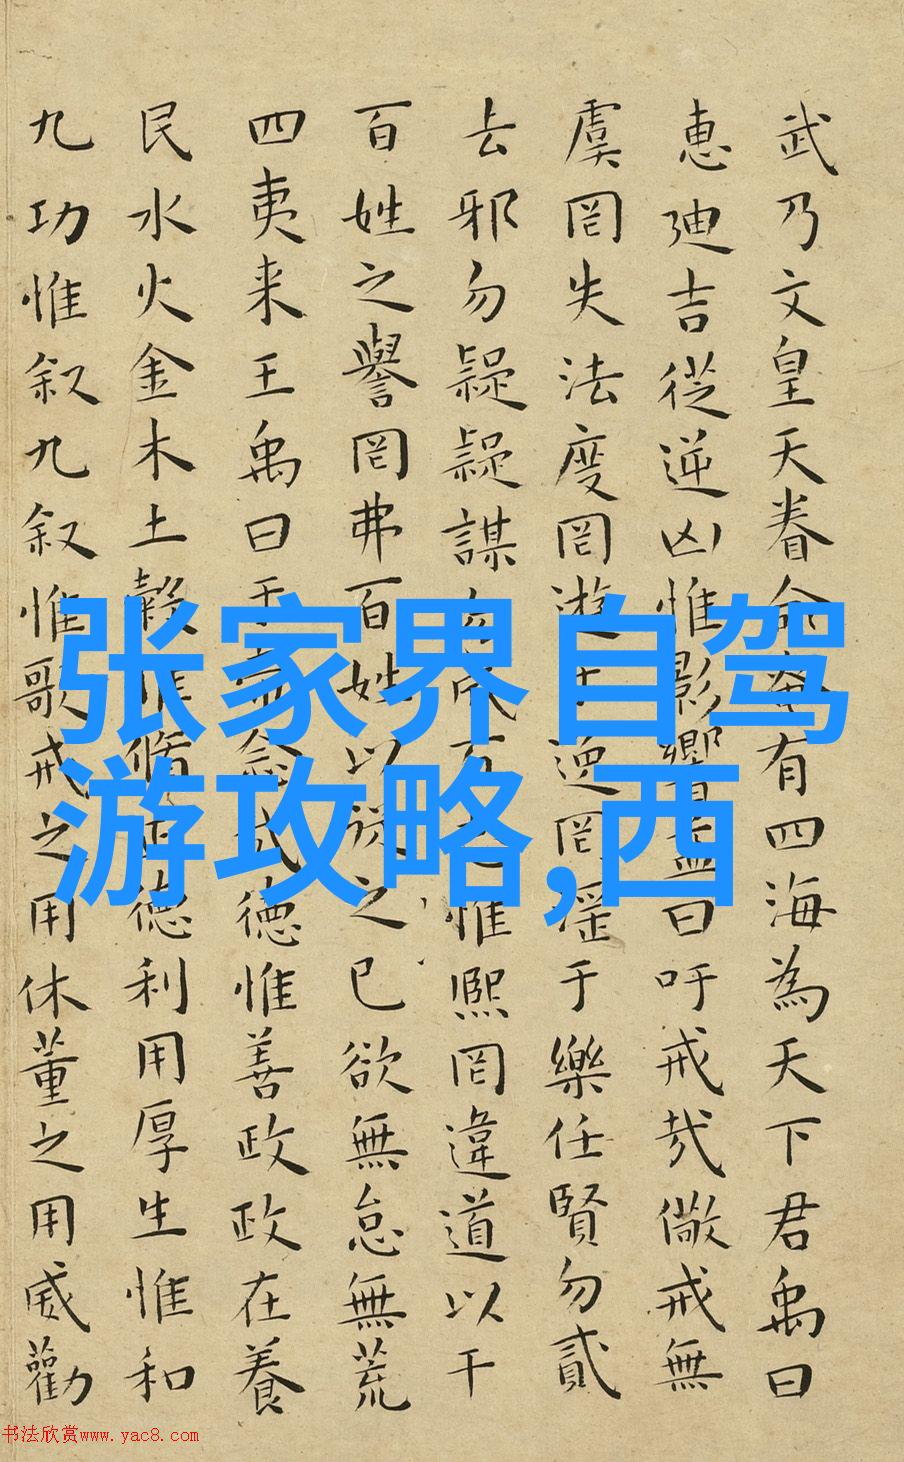 武乃文皇天眷命奄有四海為天下君禹曰
惠迪吉從逆凶惟影響益曰吁戒哉儆戒無
虞罔失法度罔遊于逸罔淫于樂任賢勿貳
去邪勿疑疑謀勿成百志惟熙罔違道以干
百姓之譽罔弗百姓以從之己欲無怠無荒
四夷来王禹曰于帝念哉德惟善政政在養
民水火金木土穀惟脩正德利用厚生惟和
九功惟叙九叙惟歌戒之用休董之用威勸
张家界自驾
游攻略,西
书法欣赏www.yac8.com